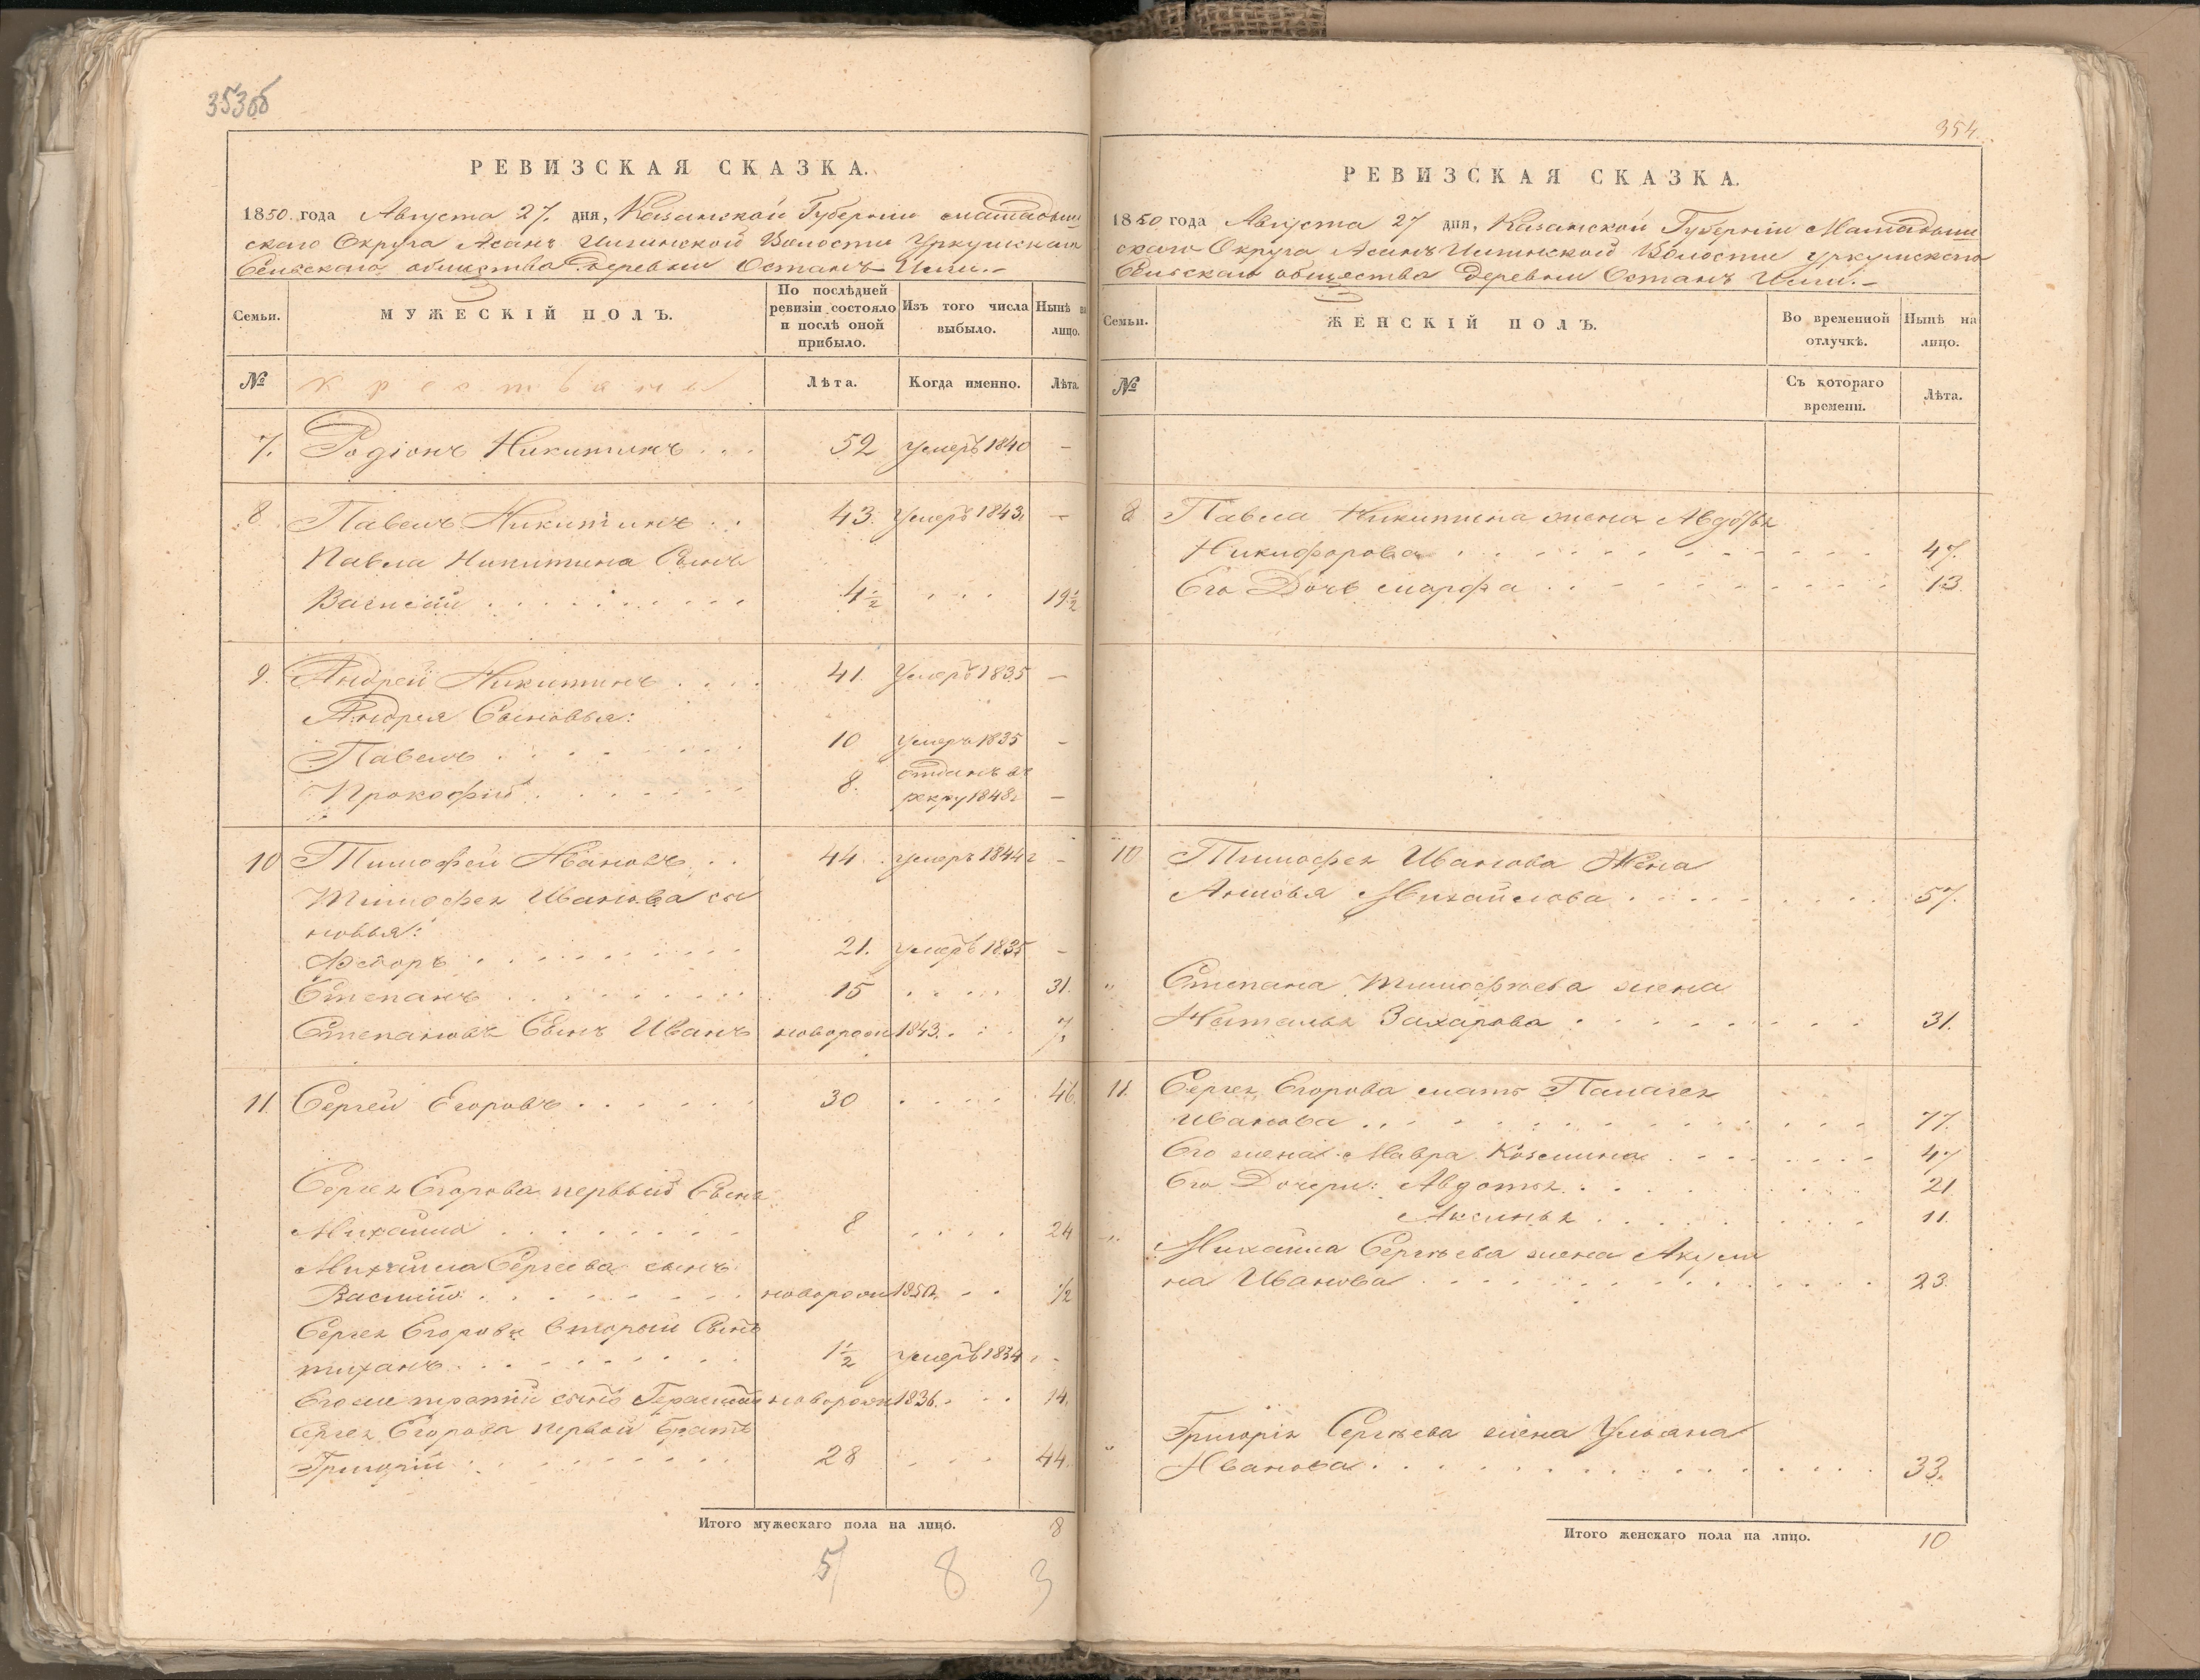 353об
РЕВИЗСКАЯ СКАЗКА.
1850 года Августа 27. дня, Казанской Губернии Мамадыш
скаго Округа Асанъ Илгинской Волости Уркушскаго
Сельскаго общества деревни Останъ Илги.-
Семьи.
МУЖЕСКІЙ ПОЛЪ.
По послѣдней
ревизіи состояло
и послѣ оной
прибыло.
Изъ того числа
выбыло.
Нынѣ на
лицо.
№
крестьяне
Лѣта.
Когда именно.
Лѣта.
7. Родіонъ Никитинъ . . . 52 умеръ 1840 -
8. Павелъ Никитинъ . . 43. Умеръ 1843. -
Павла Никитина Сынъ
Василій . . . . . . . . . 4 1/2 . . . 19 1/2
9. Андрей Никитинъ . . . . 41. Умеръ 1835 -
Андрея Сыновья:
Павелъ . . . . . . . 10 умеръ 1835 -
Прокофій . . . . . . 8. отданъ въ
рекру 1848г -
10 Тимофей Ивановъ . . 44 . умеръ 1844г -
Тимофея Иванова сы
новья:
Ѳедоръ . . . . . . . . . 21. умеръ 1835 -
Степанъ . . . . . . . . 15 . . . . 31.
Степановъ Сынъ Иванъ новорож 1843. . . . 7.
11. Сергей Егоровъ . . . . . . 30 . . . . 46.
Сергея Егорова первый Сынъ
Михайла . . . . . . . . 8 . . . . 24
Михайла Сергеева сынъ
Василій . . . . . . . . новорож 1850. . . 1/2
Сергея Егорова вторый Сынъ
тиханъ . . . . . . . . 1 1/2 умеръ 1834 . -
Егоже третій сынъ Герасимъ новорож 1836. . . . 14.
Сергея Егорова первой братъ
Григорій . . . . . . . . 28 . . . 44.
Итого мужескаго пола на лицо. 8
5 8 3
354.
РЕВИЗСКАЯ СКАЗКА.
1850 года Августа 27 дня, Казанской Губерніи Мамадыш
скаго Округа Асанъ Илгинской Волости Уркушскаго
Сельскаго общества деревни Останъ Илги.-
Семьи.
ЖЕНСКІЙ ПОЛЪ.
Во временной
отлучкѣ.
Нынѣ на
лицо.
№
Съ котораго
времени.
Лѣта.
8 Павла Никитина жена Авдотья
Никифорова . . . . . . . . . . . 47.
Его Дочь марфа . . . . . . . . . 13.
10 Тимофея Иванова Жена
Анисья Михайлова . . . . . . . . 57.
" Степана Тимофѣева жена
Наталья Захарова . . . . . . . . 31.
11. Сергея Егорова мать Палагея
Иванова . . . . . . . . . . . . . 77.
Его жена Мавра Козмина . . . . . . 47
Его Дочери: Авдотья . . . . . . . . 21
Аксинья . . . . . . . 11.
" Михайла Сергѣева жена Акули
на Иванова . . . . . . . . . . . . 23.
" Григорія Сергѣева жена Ульяна
Иванова . . . . . . . . . . . . . 33.
Итого женскаго пола на лицо. 10